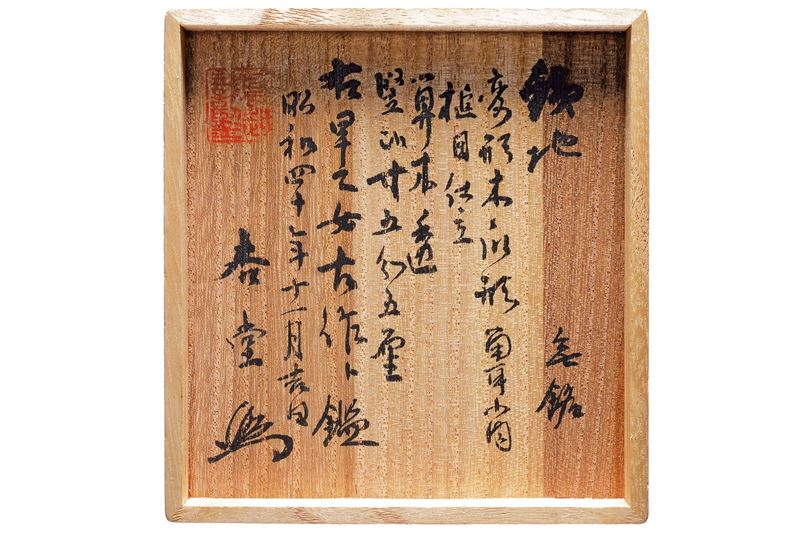 鉄地 無銘
変形木瓜形 角耳小肉
槌目仕立
算木透
竪廿五分五厘
右早乙女古作ト鑑
昭和四十年十一月吉日
杏堂